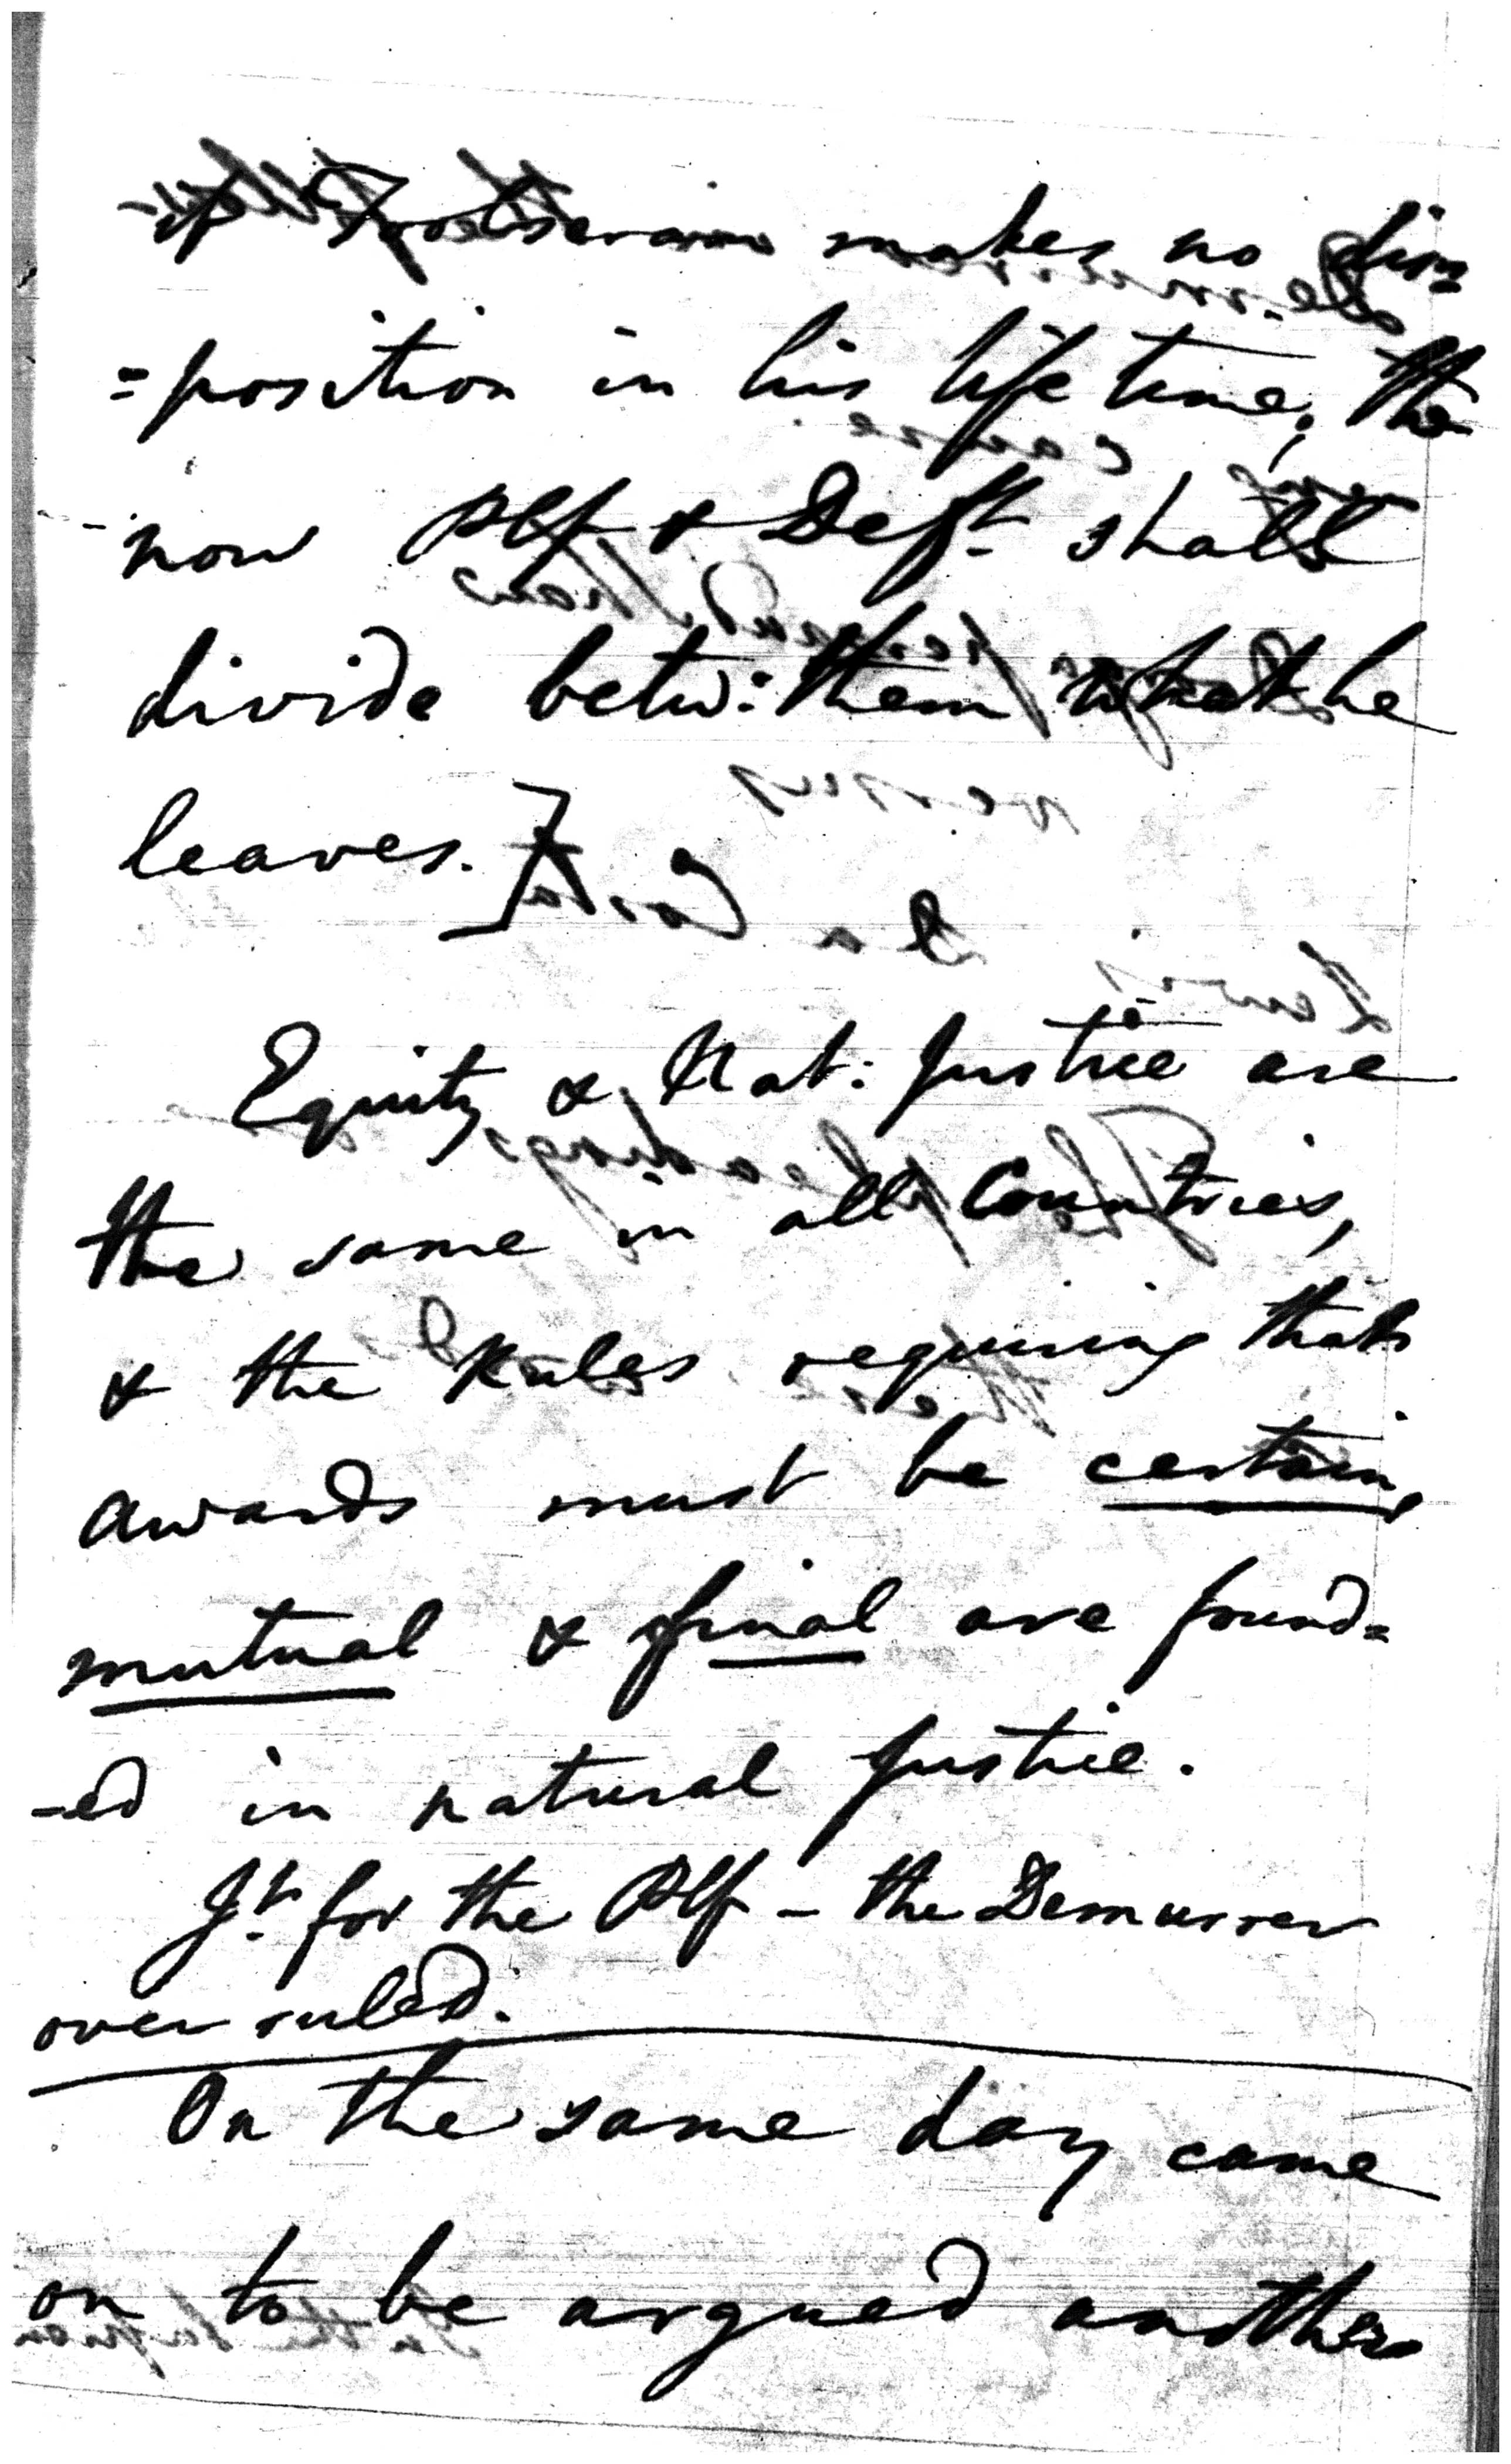 if makes no dis=
=position in his life time, the
now Plf & Deft. shall
divide betw: them what he
leaves.]
Equity & Nat: Justice are
the same in all Countries,
& the Rules requiring that
awards must be certain,
mutual & final are found=
-ed in natural Justice.
Jt. for the Plf - the Demurrer
over ruled.
On the same day came
on to be argued another